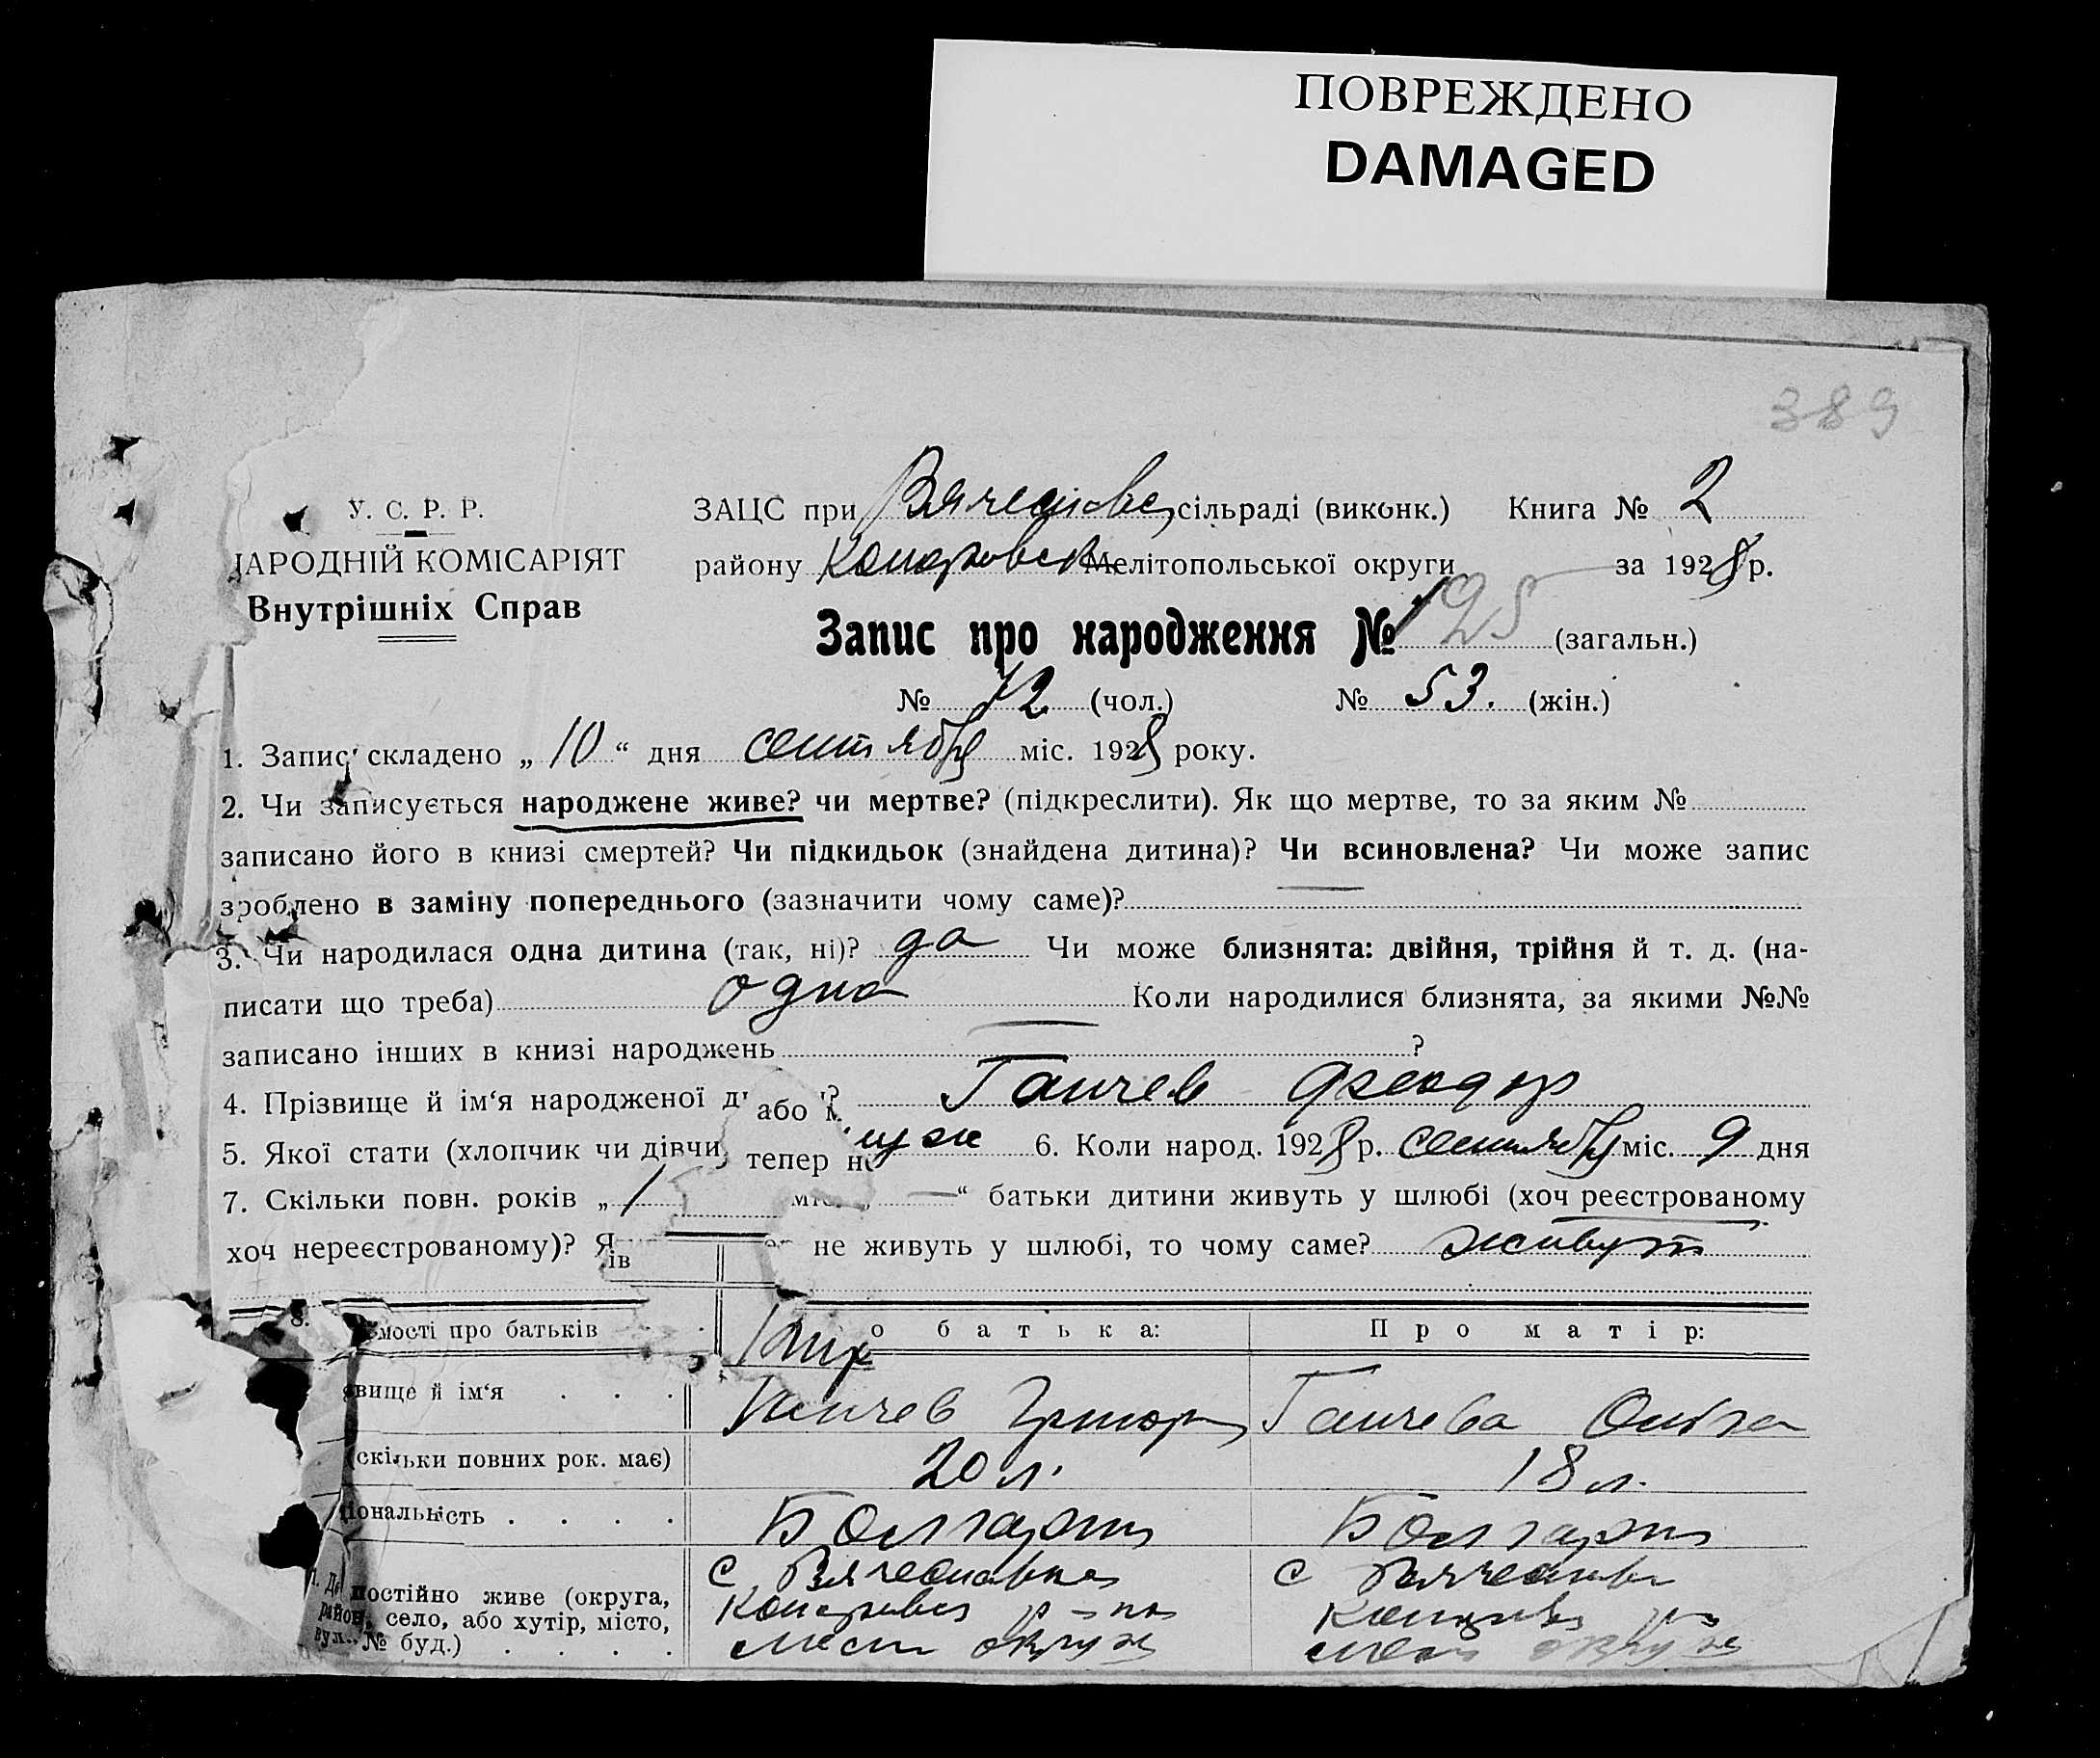 ПОВРЕЖДЕНО
DAMAGED
389
У. С. Р. Р.
НАРОДНІЙ КОМІСАРІЯТ
Внутрішніх Справ
ЗАЦС при сільраді (виконк.) Книга № 2
району Мелітопольської округи за 1928 р.
Запис про народження № 125 (загальн.)
№ 72 (чол.) № 53. (жін.)
1. Запис складено „ 10 “ дня сентября міс. 1928 року.
2. Чи записується народжене живе? чи мертве? (підкреслити). Як що мертве, то за яким №
записано його в книзі смертей? Чи підкидьок (знайдена дитина)? Чи всиновлена? Чи може запис
зроблено в заміну попереднього (зазначити чому саме)?
3. Чи народилася одна дитина (так, ні)? да Чи може близнята: двійня, трійня й т. д. (на-
писати що треба) одна Коли народилися близнята, за якими №№
записано інших в книзі народжень ?
4. Прізвище й ім‘я народженої Ганчев Феодор
або
5. Якої стати (хлопчик чи дівчи муж 6. Коли народ. 1928 р. сентября міс. 9 дня
тепер
7. Скільки повн. років „ 1 міс. „ — “ батьки дитини живуть у шлюбі (хоч реєстрованому
хоч нереєстрованому)? Я не живуть у шлюбі, то чому саме? живут
ів
8. мості про батьків о батька: Про матір:
звище й ім‘я . . . Ганчев Григорий Ганчева
(скільки повних рок. має) 20 л. 18 л.
ціональність . . . . Болгарин Болгарин
1. Де постійно живе (округа, с. Вячеславка с
район, село, або хутір, місто, р-на
вул., № буд.) . . . . округи округи